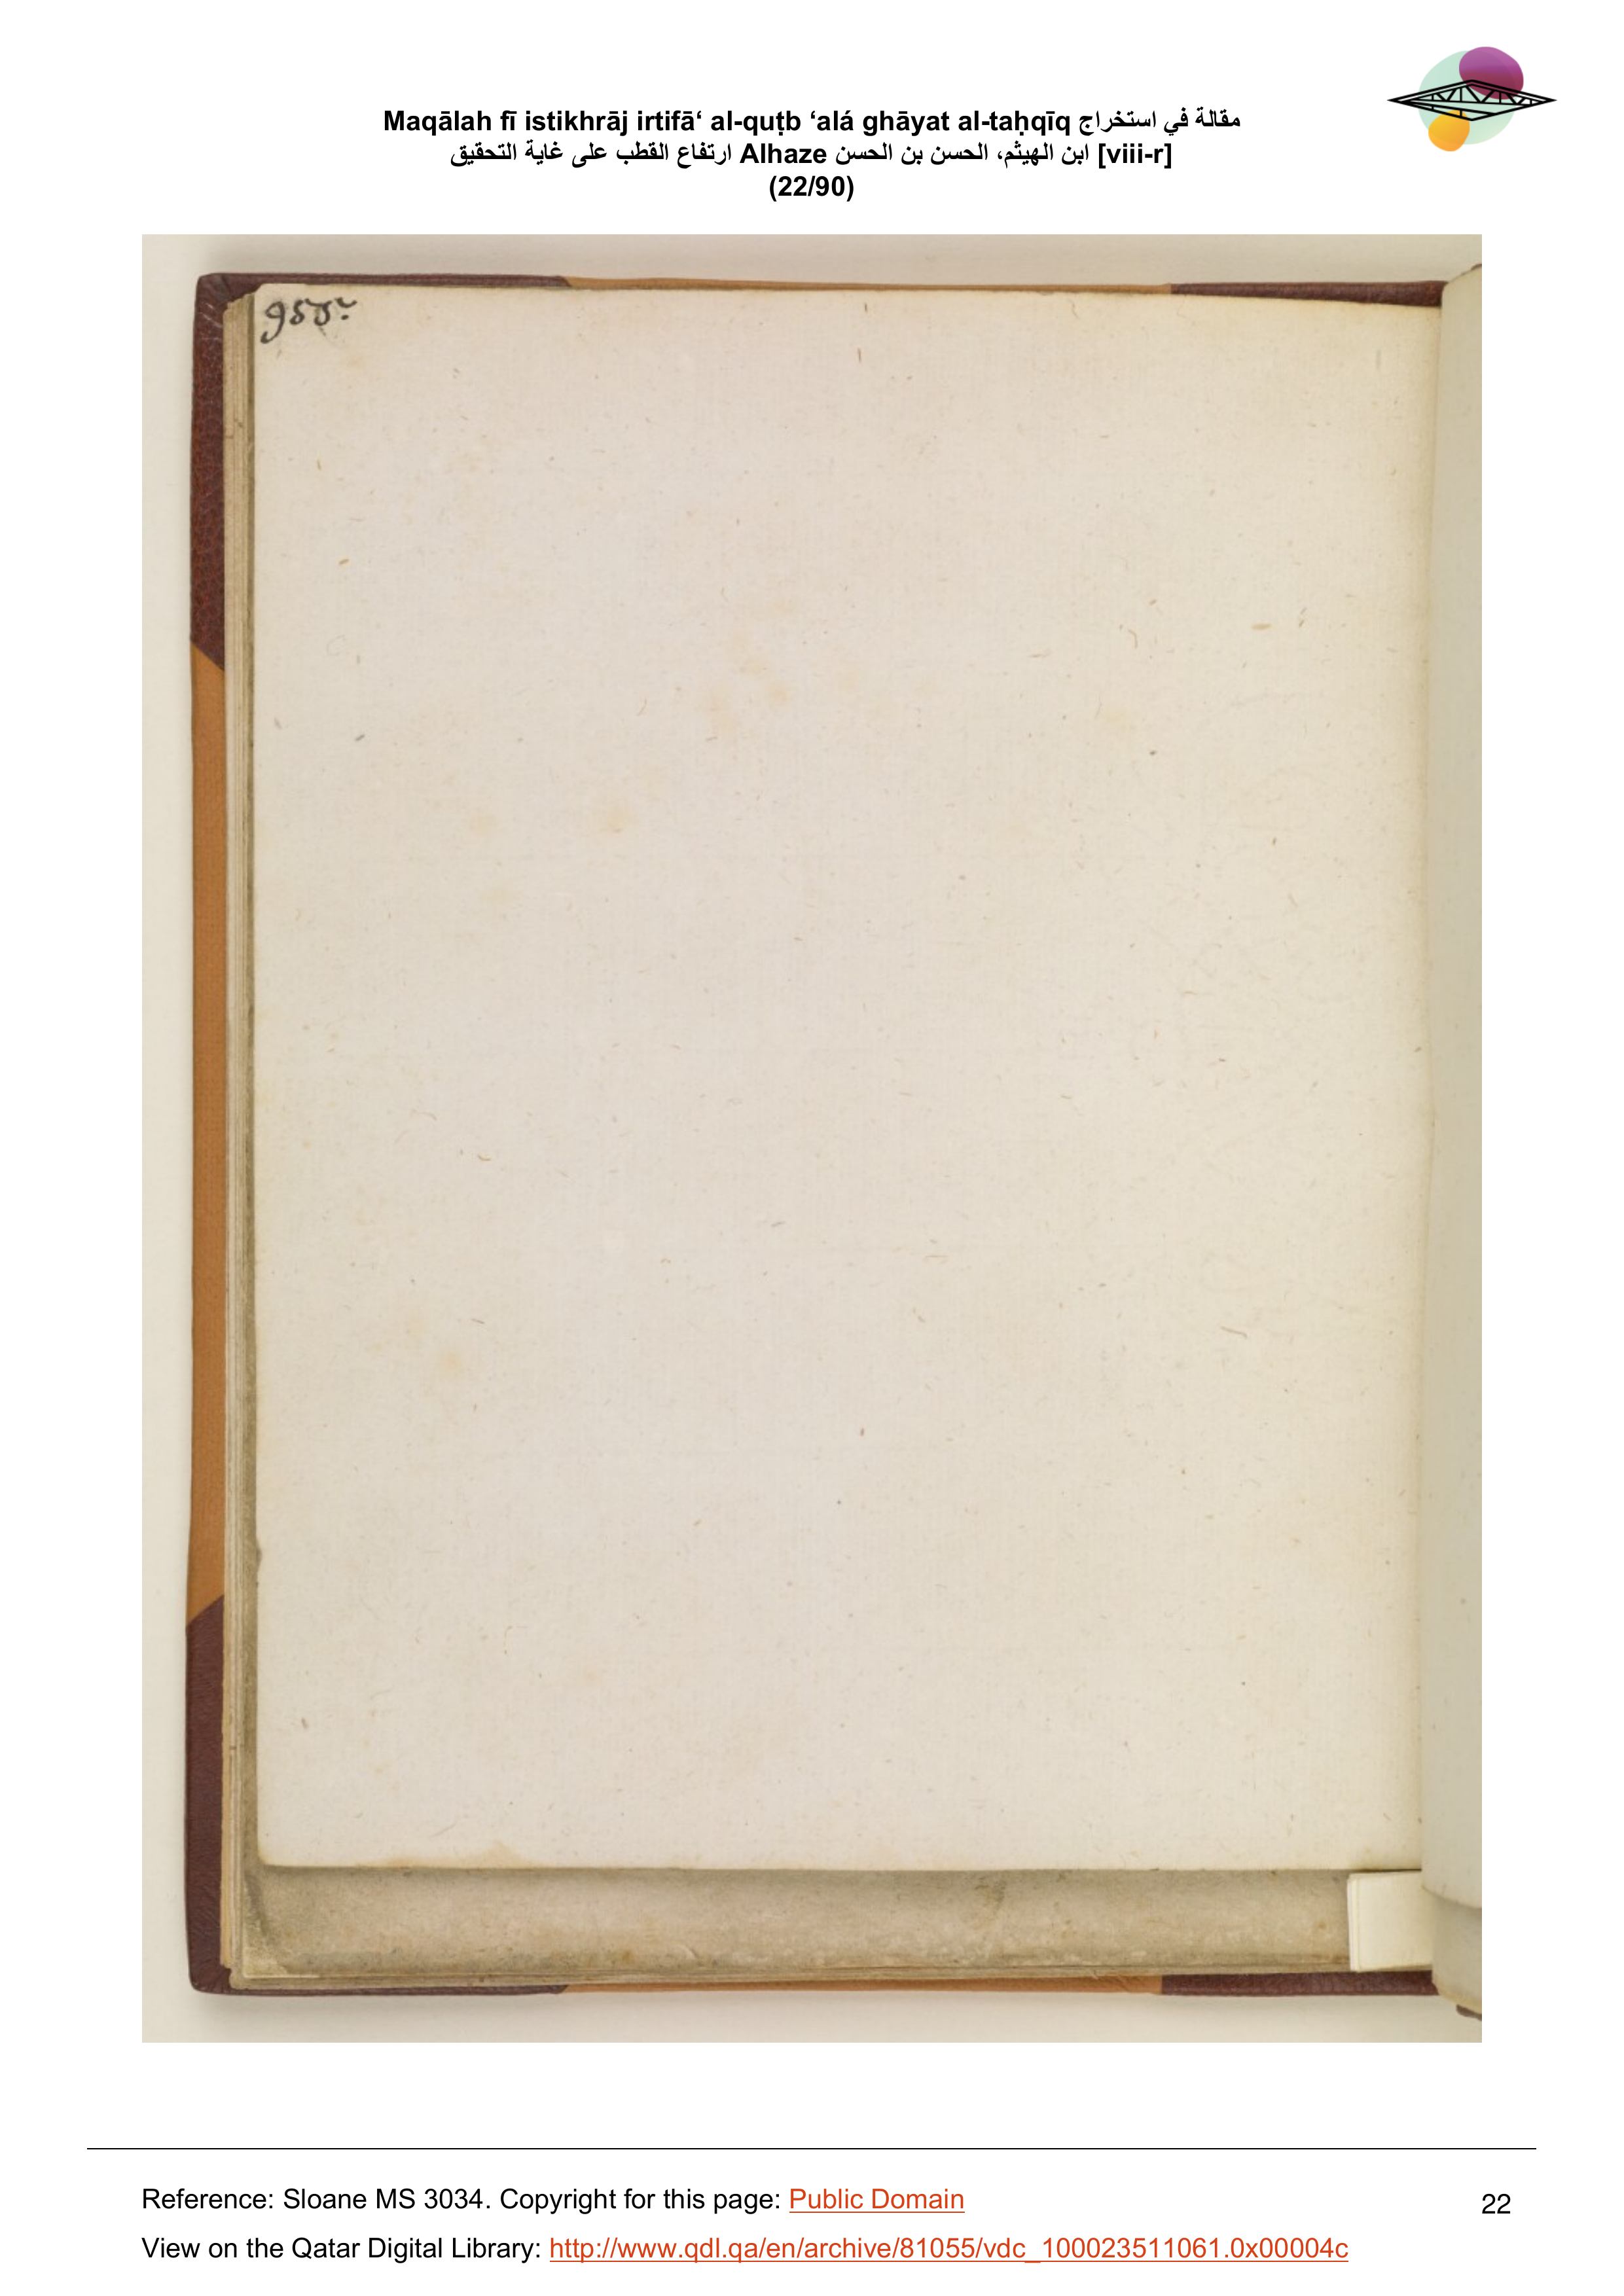 Maqālah fī istikhrāj irtifā‘ al-quṭb ‘alá ghāyat al-taḥqīq مقالة في استخراج
ارتفاع القطب على غاية التحقيق Alhaze ابن الهيثم، الحسن بن الحسن [viii-r]
(22/90)
Reference: Sloane MS 3034. Copyright for this page: Public Domain
22
View on the Qatar Digital Library: http://www.qdl.qa/en/archive/81055/vdc_100023511061.0x00004c